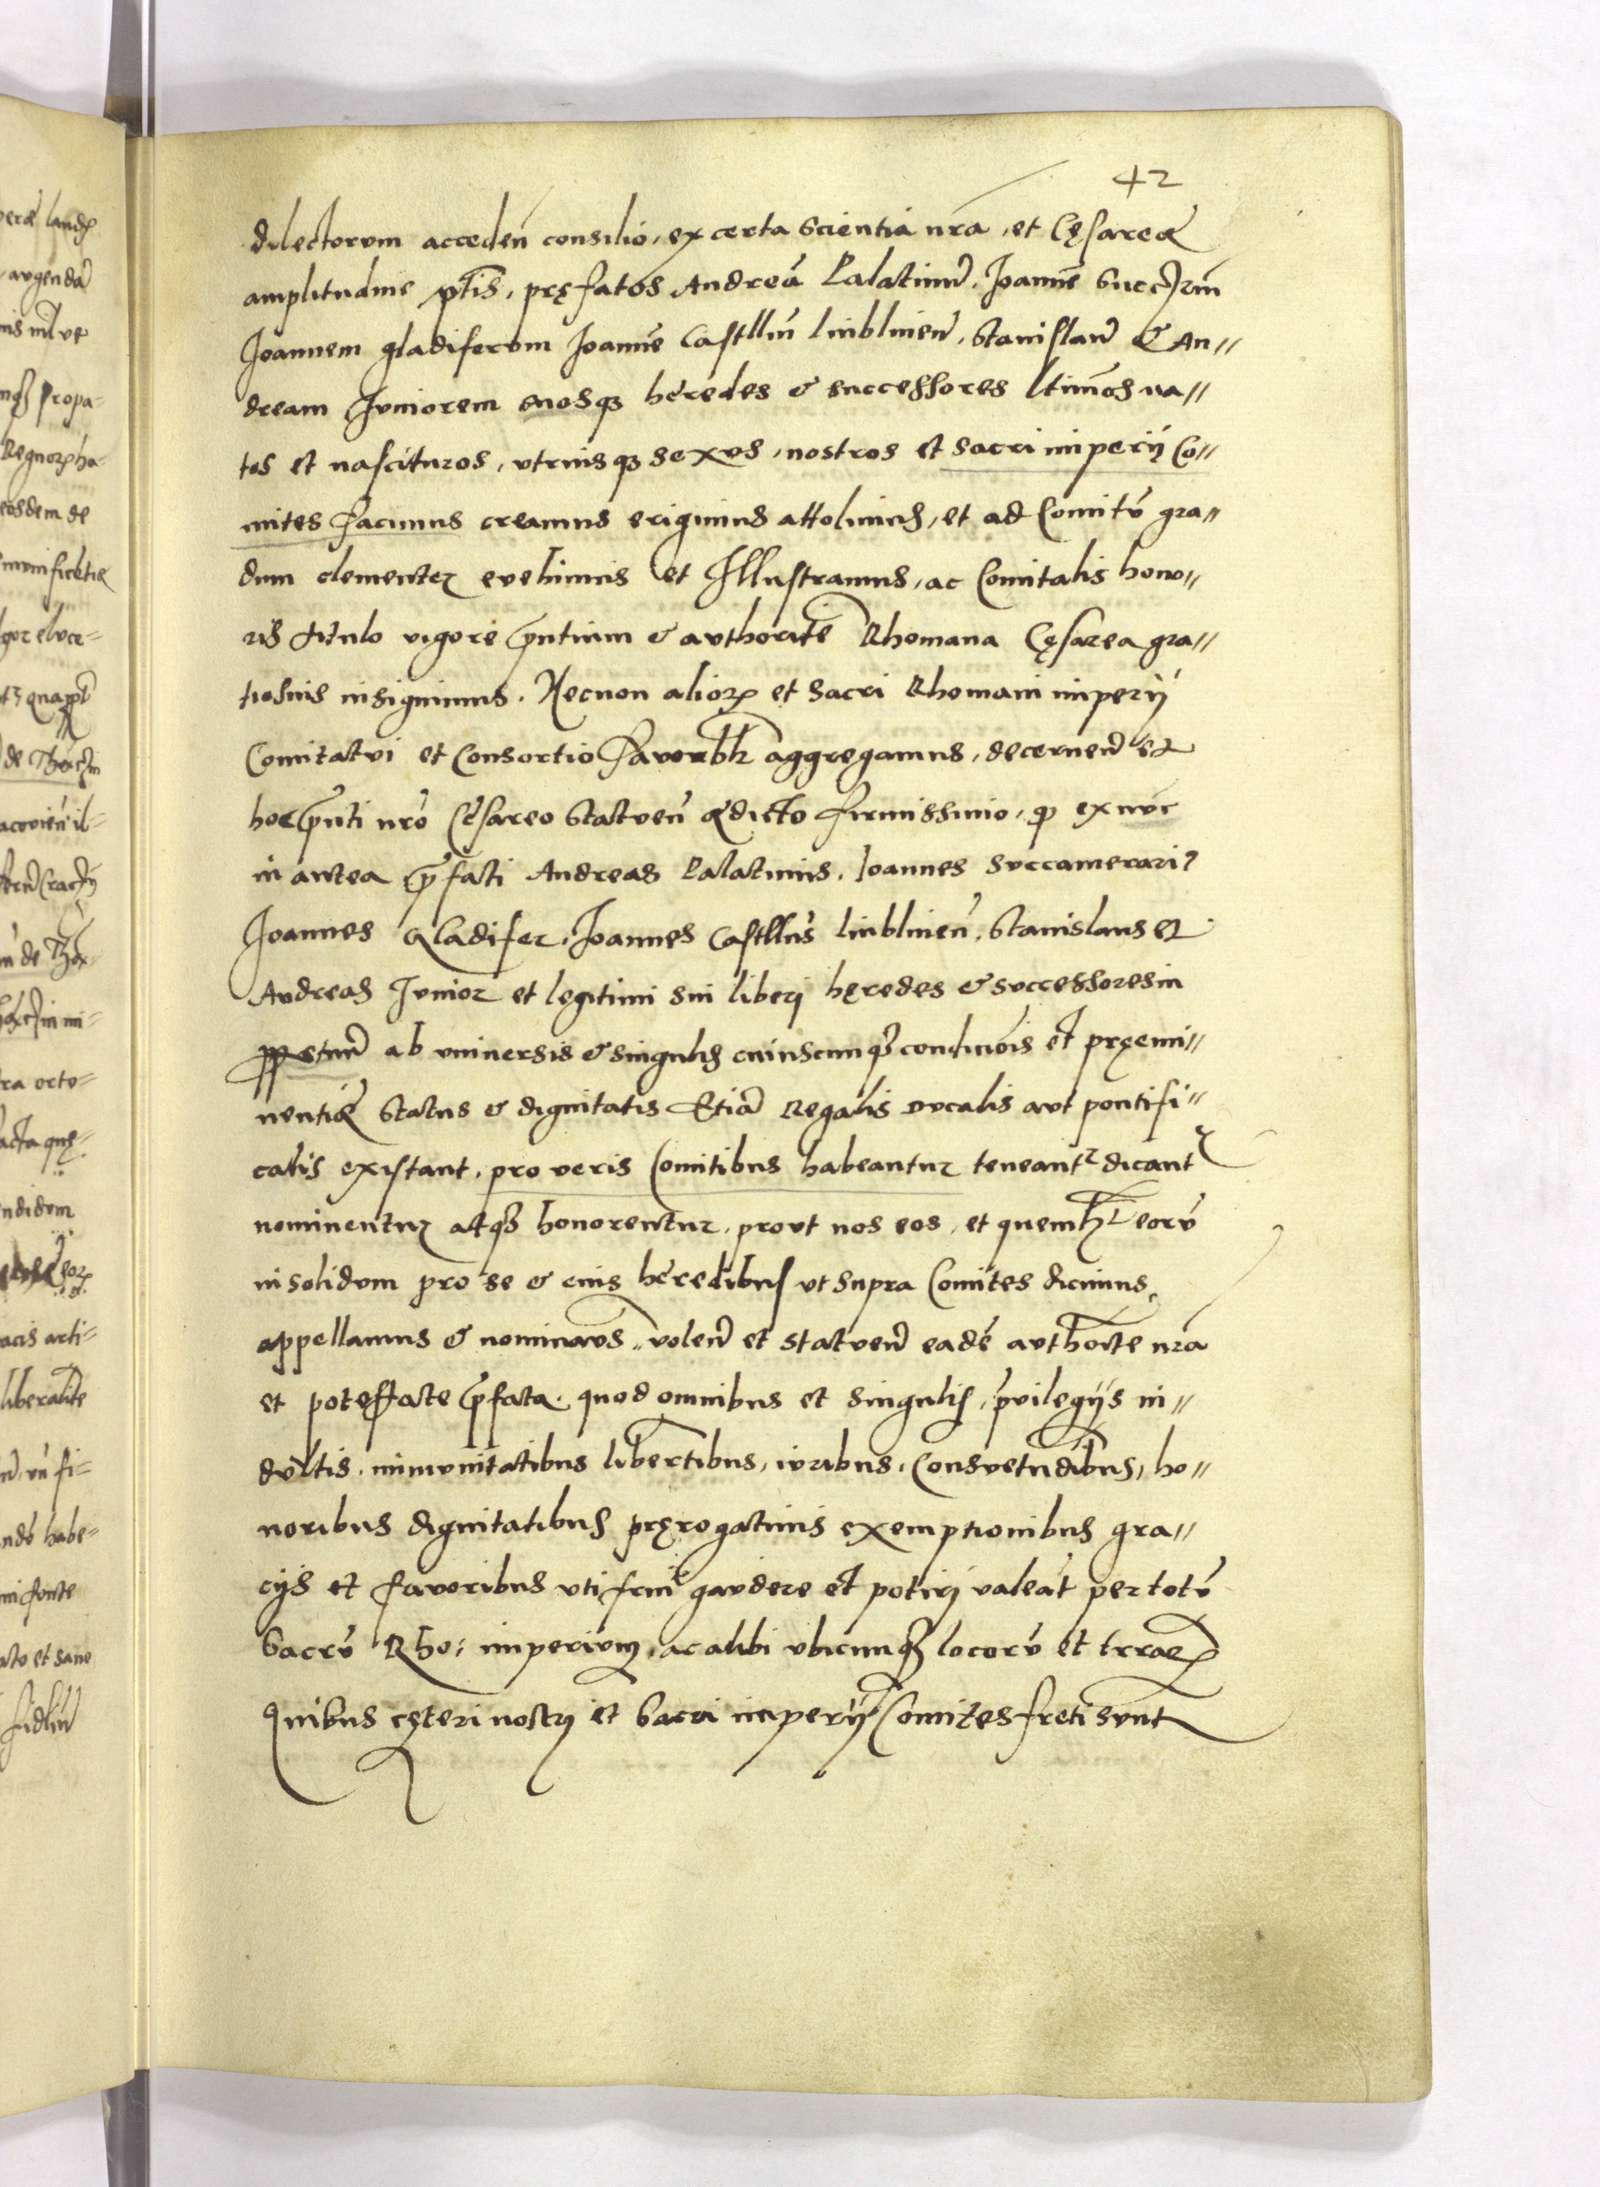 42
dilectorum acceden̄ consilio, ex certa Scientia nr̄a, et Cęsareæ
amplitudine ptīs, pręfatos Andreā Palatinū, Joannē Succ
Joannem gladiferum Joannē Castllūm lublinen̄, Stanislaū & An„
dream Juniorem suosq; hęredes & successores ltimos na„
tos et nascituros, utriusq; sexus, nostros et sacri imperij Co„
mites facimus creamus erigimus attolimus, et ad Comitū gra„
dum clementer evehimus et Illustramus, ac Comitalis hono„
ris titulo vigore p̄ntium & authoritē Rhomana Cęsarea gra„
tiosius insignimus. Necnon alioꝝ et sacri Rhomani imperij
Comitatui et Consortio favorabłr aggregamus, decernen̄ et
hoc p̄nti nr̄o Cęsareo Statuen̄ ædicto firmissimo, qȝ ex nūc
in antea p̄fati Andreas Palatinus, Joannes Succamerari9
Joannes Gladifer, Joannes Castllūs lublinen̄, Stanislaus et
Andreas Junior et legitimi sui liberj hęredes & successores in
ꝑpetuū ab universis & singulis cuiuscunqȝ condiciōis et pręemi„
nentiæ Status & dignitatis Etiā Regalis Ducalis aut pontifi„
calis existant, pro veris Comitibus habeantur teneantr dicantr
nominentur atqȝ honorentur, prout nos eos, et quemłt eorū
insolidum pro se & eius hęredibus ut supra Comites dicimus,
appellamus & nominamus, volen̄ et statuen̄ eadē authoritē nr̄a
et potestate p̄fata. quod omnibus et singulis, p̄vilegijs in„
dultis, immunitatibus libertibus, iuribus, Consuetudibus, ho„
noribus dignitatibus pręrogativis exemptionibus gra„
cijs et favoribus uti frui gaudere et potirj valeāt per totū
Sacrū Rho: imperium, ac alibi ubicunqȝ locorū et trraꝝ
Quibus cęteri nostrj et Sacri imperij Comites freti sunt